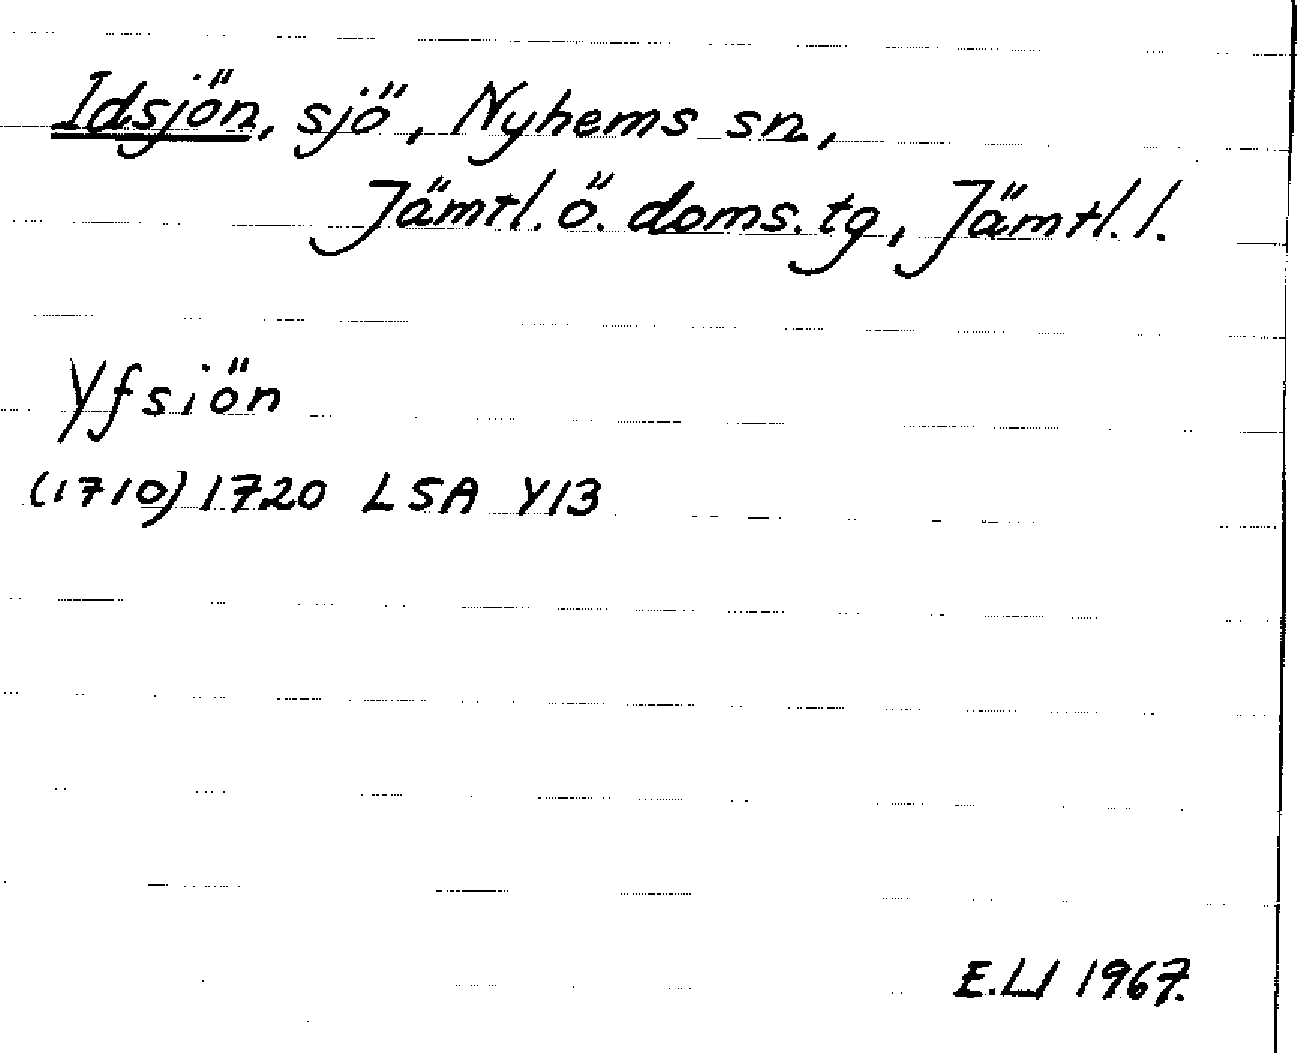 Idsjön, sjö, Nyhems sn,
Jämtl. ö. doms. tg, Jämtl. l.
Yfsiön
(1710) 1720 LSA Y13
E.LI 1967.